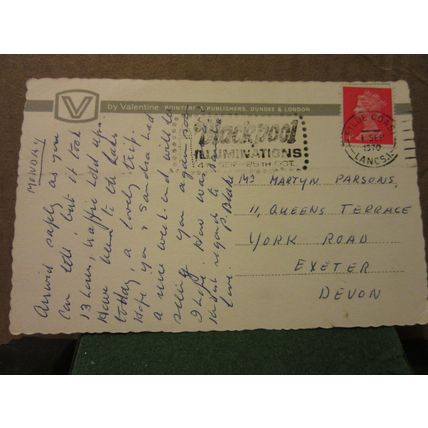 by Valentine PRINTERS & PUBLISHERS, DUNDEE & LONDON
V
Blackpool
ILLUMINATIONS
25TH OCT.
FYLDE COAST
1 SEP
1970
LANCS.
MONDAY
Arrived safely as you
can tell, but it took
13 hours, traffic held ups
Have been to the Lakes
today, a lovely trip.
Hope you & Sandra had
a nice week-end and will be
seeing you again
I hope. How was
regards to
love.
MR MARTYN PARSONS,
11, QUEENS TERRACE
YORK ROAD
EXETER
DEVON